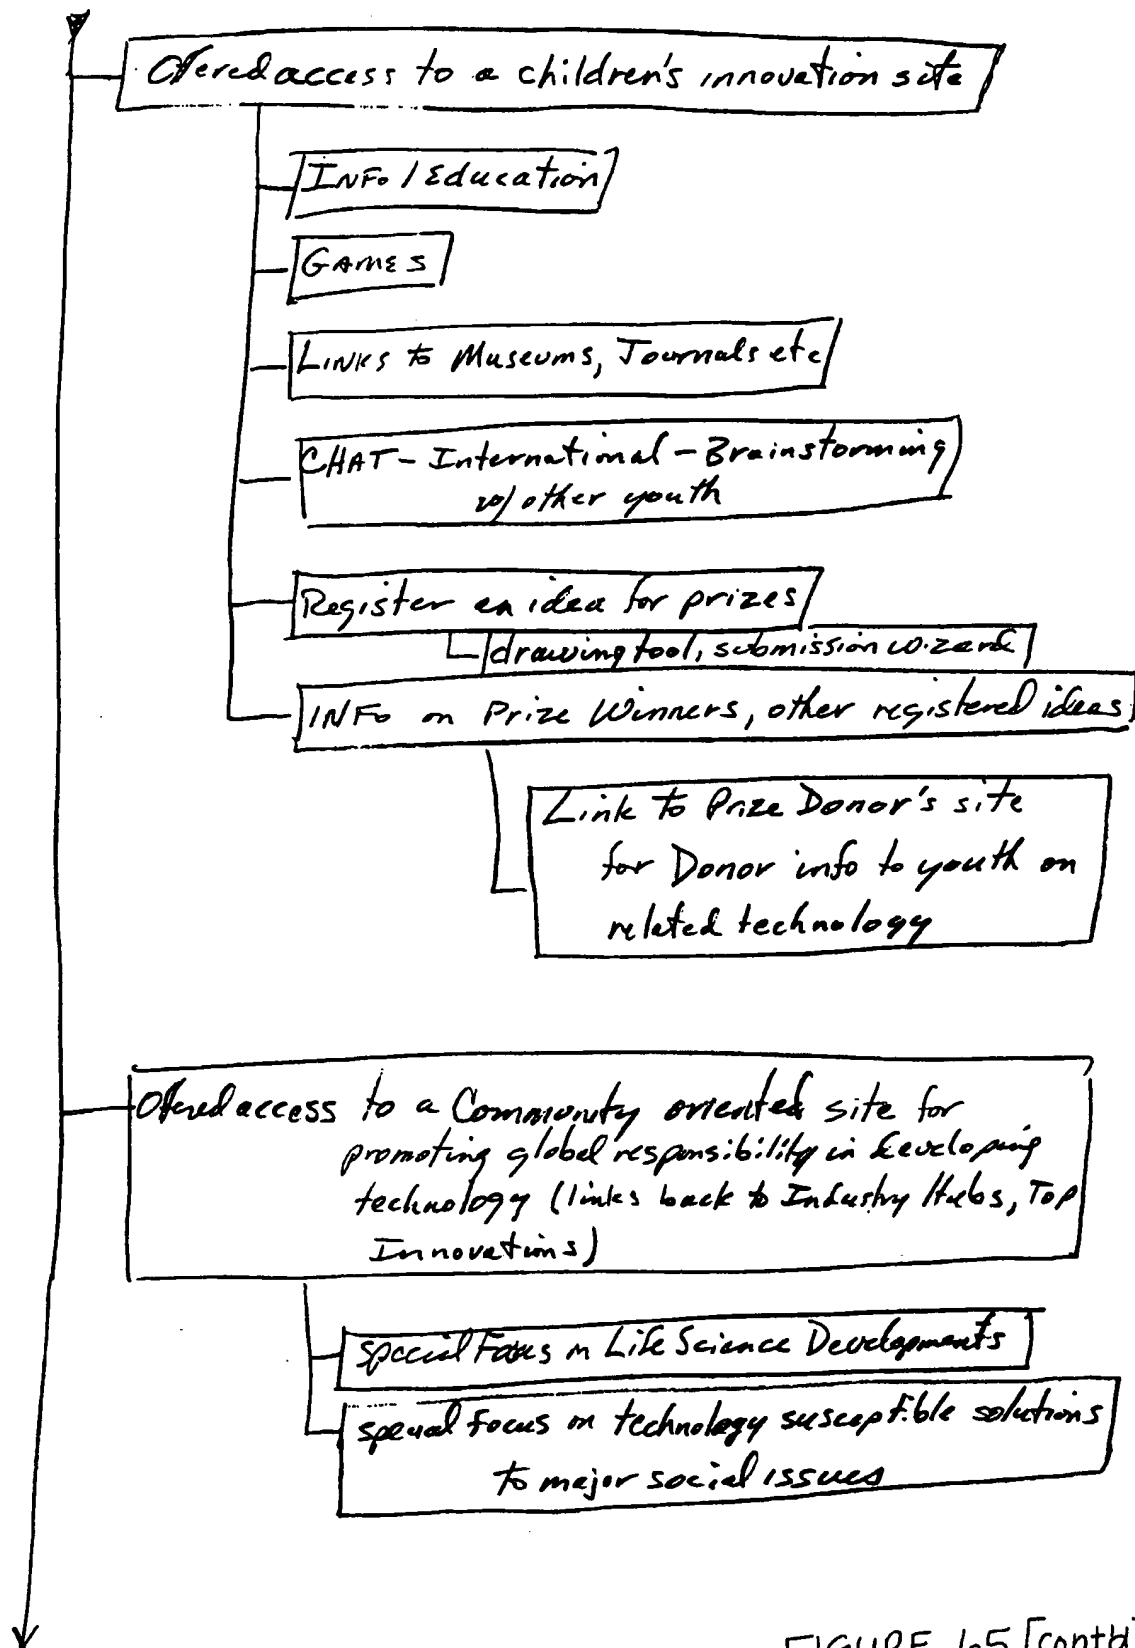 Offered access to a children's innovation site
INFO / Education
GAMES
LINKS to Museums, Journals etc
CHAT - International - Brainstorming
w/ other youth
Register an idea for prizes
drawing tool, submission wizard
INFO on Prize Winners, other registered ideas
Link to Prize Donor's site
for Donor info to youth on
related technology
Offered access to a Community oriented site for
promoting global responsibility in developing
technology (links back to Industry Hubs, Top
Innovations)
special Focus on Life Science Developments
special focus on technology susceptible solutions
to major social issues
FIGURE 65 [cont'd